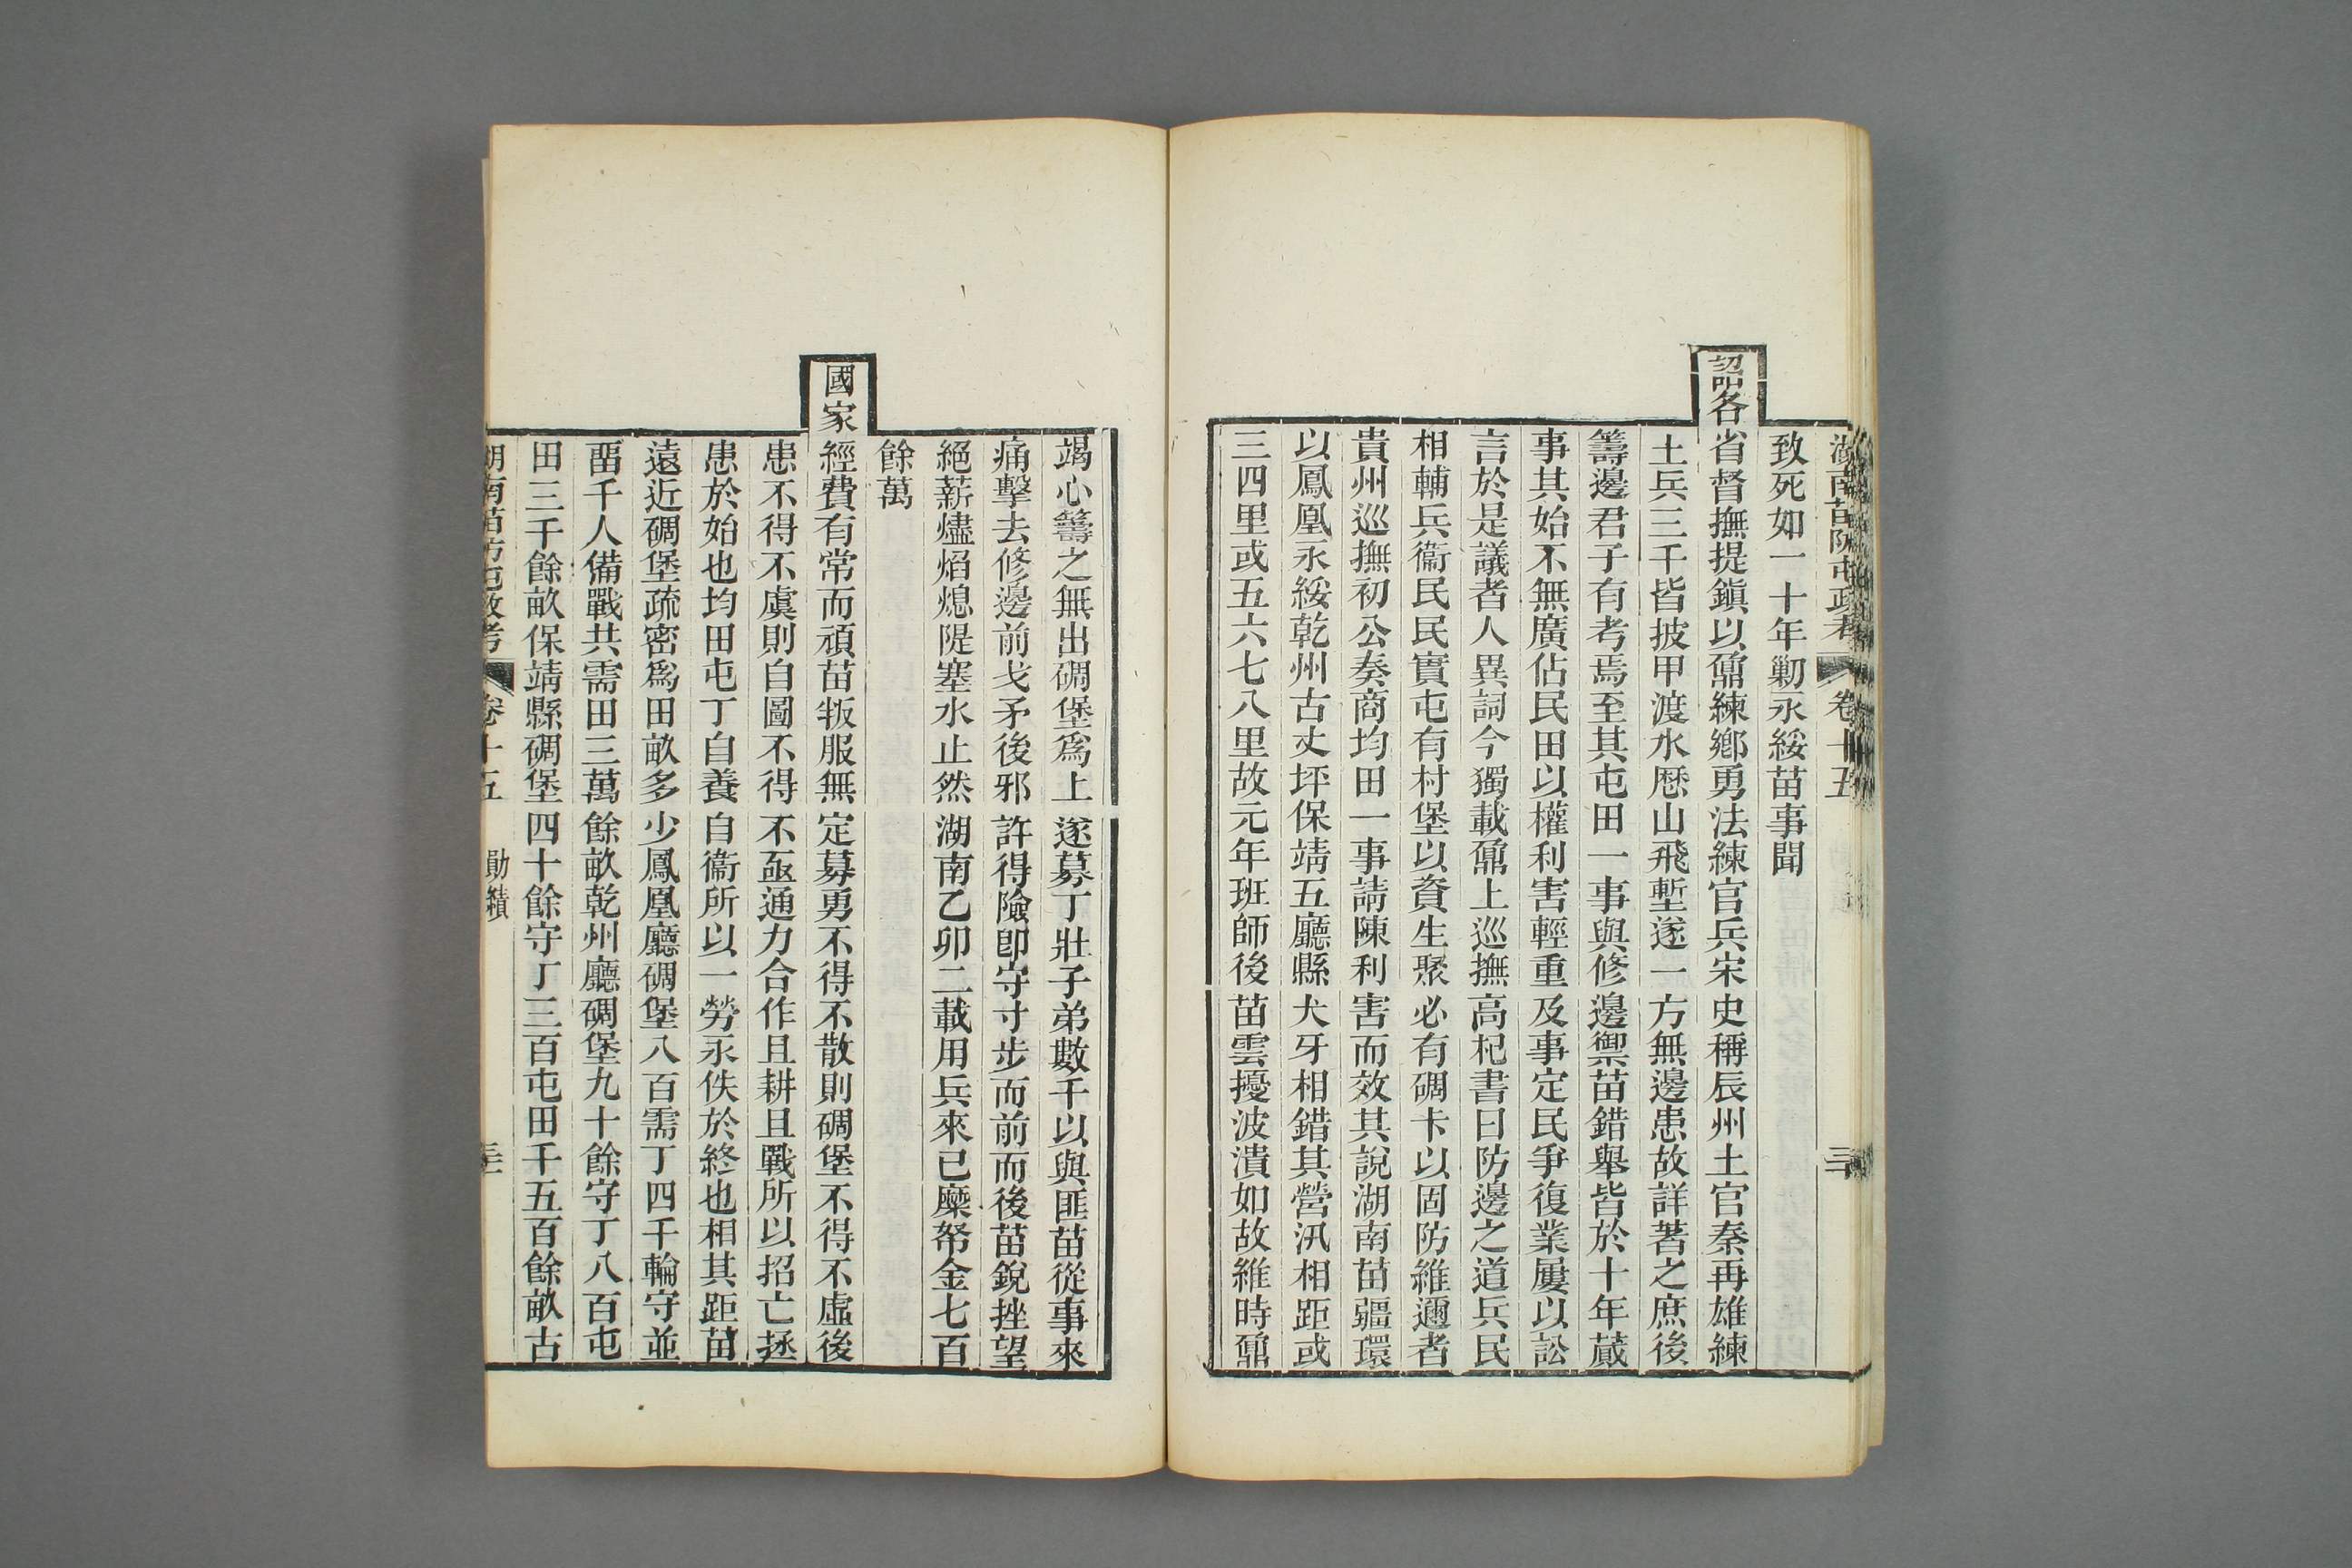 湖南苗防屯政考 卷十五 三十
致死如一十年勦永綏苗事聞
詔各省督撫提鎮以鼐練鄉勇法練官兵宋史稱辰州土官秦再雄練
土兵三千皆披甲渡水歷山飛塹遂一方無邊患故詳著之庶後
籌邊君子有考焉至其屯田一事與修邊禦苗錯舉皆於十年蕆
事其始不無廣佔民田以權利害輕重及事定民爭復業屢以訟
言於是議者人異詞今獨載鼐上巡撫高杞書曰防邊之道兵民
相輔兵衞民民實屯有村堡以資生聚必有碉卡以固防維邇者
貴州巡撫初公奏商均田一事請陳利害而效其說湖南苗疆環
以鳳凰永綏乾州古丈坪保靖五廳縣犬牙相錯其營汛相距或
三四里或五六七八里故元年班師後苗雲擾波潰如故維時鼐
竭心籌之無出碉堡爲上遂募丁壯子弟數千以與匪苗從事來
痛擊去修邊前戈矛後邪許得險卽守寸步而前而後苗銳挫望
絕薪燼焰熄隄塞水止然湖南乙卯二載用兵來已糜帑金七百
餘萬
國家經費有常而頑苗叛服無定募勇不得不散則碉堡不得不虛後
患不得不虞則自圖不得不亟通力合作且耕且戰所以招亡拯
患於始也均田屯丁自養自衞所以一勞永佚於終也相其距苗
遠近碉堡疏密爲田畝多少鳳凰廳碉堡八百需丁四千輪守並
畱千人備戰共需田三萬餘畝乾州廳碉堡九十餘守丁八百屯
田三千餘畝保靖縣碉堡四十餘守丁三百屯田千五百餘畝古
湖南苗防屯政考 卷十五 勛績